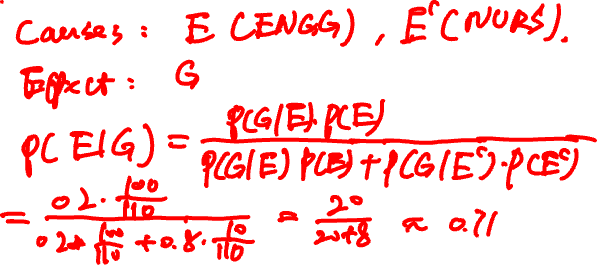 Causes : E (ENGG) , Eᶜ (NURS).
Effect : G
P(E|G) = P(G|E) P(E) / P(G|E) P(E) + P(G|Eᶜ) · P(Eᶜ)
= 0.2 · 100/110 / 0.2 · 100/110 + 0.8 · 10/110 = 20/20+8 ≈ 0.71